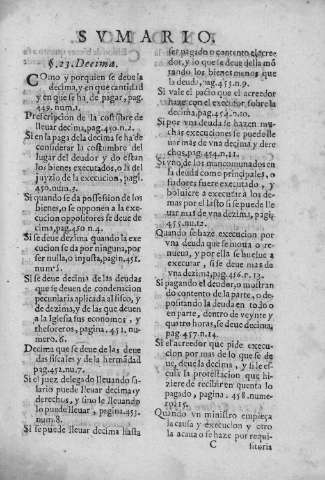 SVMARIO.
§.23. Decima.
COmo y porquien se deue la
decima, y en que cantidad
y en que se ha de pagar, pag.
449. num.1.
Prescripcion de la costũbre de
lleuar decima, pag.450.n.2.
Si en la paga dela decima se ha de
considerar la costumbre del
lugar del deudor y do estan
los bienes executados, o la del
juyzio de la execucion, pagi.
450. num.3.
Si quando se da possesion de los
bienes, o se oponen a la exe
cucion oppositores se deue de
cima, pag.450 n.4.
Si se deue dezima quando la exe
cucion se da por ninguna, por
ser nulla, o injusta, pagin, 451.
num 5.
Si se deue decima de las deudas
que se deuen de condenacion
pecuniaria aplicada al fisco, y
de dezima, y de las que deuen
a la Iglesia sus economos, y
thesoreros, pagina, 451, nu-
mero. 6.
Decima que se deue de las deu
das fiscales y de la hermãdad
pag.452. nu.7.
Si el juez delegado lleuando sa-
lario puede lleuar decima y
derechos, y sino le lleuando
lo puede lleuar, pagina 453.
num 8.
Si se puede lleuar decima hasta
ser pagado o contento el acree
dor, y lo que se deue della mõ
tando los bienes menos que
la deuda, pag.453.n.9.
Si vale el pacto que el acreedor
haze con el executor sobre la
decima, pag.454.n.10.
Si por vna deuda se hazen mu-
chas executiones se puede lle
uar mas de vna decima y dere
chos, pag.454.n.11.
Si vno de los mancomunados en
la deuda como principales, o
fiadores fuere executado, y
boluiere a executar a los de-
mas por el lasto si se puede lle
uar mas de vna dezima, pagi.
455. nu.12.
Quando se haze execucion por
vna deuda que se noua o re-
nueua, y por ella se buelue a
executar, si se deue mas de
vna dezima, pag.456.n.13.
Si pagando el deudor, o mostran
do contento de la parte, o de-
positando la deuda en todo o
en parte, dentro de veynte y
quatro horas, se deue decima,
pag 457.n.14.
Si el acreedor que pide execu-
cion por mas de lo que se de
ue, deue la decima, y si le es-
cusa la protestacion que hi-
ziere de rescibir en quenta lo
pagado, pagina, 458. nume-
ro 15.
Quando vn ministro empieça
la causa y execucion y otro
la acaua se haze por requi-
C sitoria